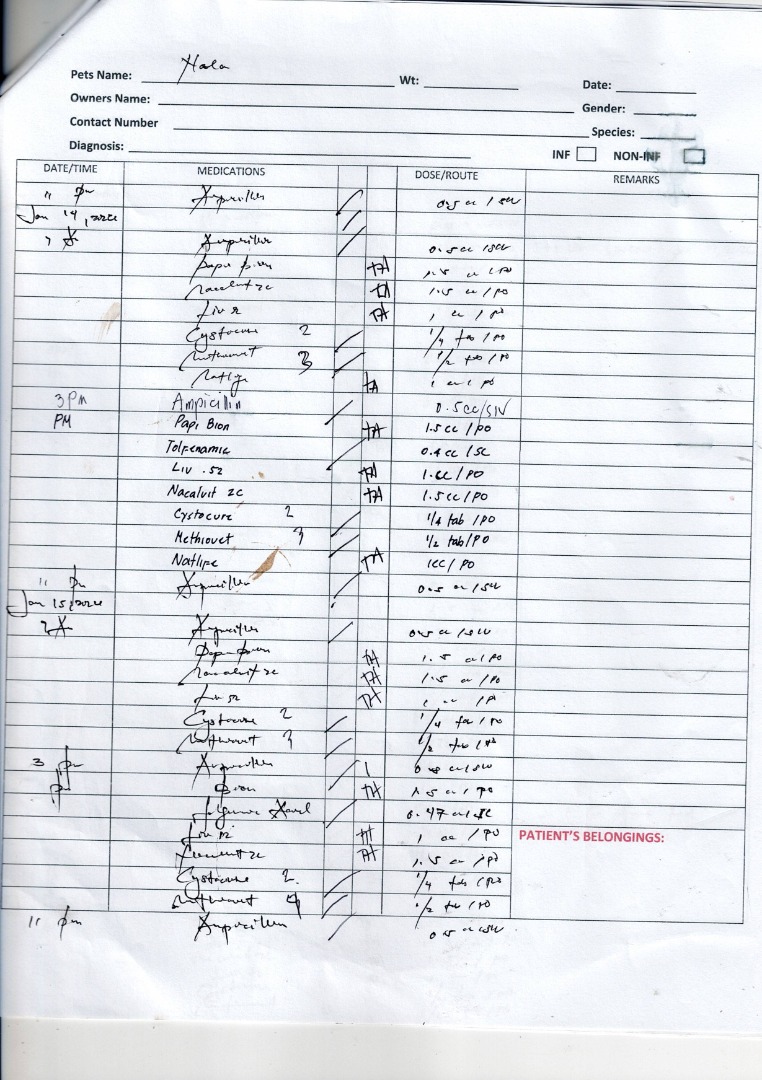 Pets Name: Hala Wt: Date:
Owners Name: Gender:
Contact Number Species:
Diagnosis: INF NON-INF
DATE/TIME MEDICATIONS DOSE/ROUTE REMARKS
11 pm Ampicillin 0.5 cc / SIV
Jan 14, 2022
Ampicillin 0.5 cc / SIV
Papi Bion TA 1.5 cc / PO
Nacalvit 2c TA 1.5 cc / PO
Liv 52 TA 1 cc / PO
Cystocure 2 1/4 tab / PO
Methiovet 3 1/2 tab / PO
Natlipe TA 1 cc / PO
3 PM Ampicillin 0.5 cc/SIV
PM Papi Bion TA 1.5 cc / PO
Tolfenamic 0.4 cc / SC
Liv .52 TA 1.cc / PO
Nacalvit 2c TA 1.5 cc / PO
Cystocure 2 1/4 tab / PO
Methiovet 3 1/2 tab / PO
Natlipe TA 1cc / PO
11 pm Ampicillin 0.5 cc / SIV
Jan 15, 2022
Ampicillin 0.5 cc / SIV
Papi Bion TA 1.5 cc / PO
Nacalvit 2c TA 1.5 cc / PO
Liv 52 TA 1 cc / PO
Cystocure 2 1/4 tab / PO
Methiovet 3 1/2 tab / PO
3 pm Ampicillin cc / SIV
pm Bion TA 1.5 cc / PO
0.47 cc / SC
Liv 52 TA 1 cc / PO
PATIENT'S BELONGINGS:
TA 1.5 cc / PO
Cystocure 2 1/4 tab / PO
Methiovet 1/2 tab / PO
11 pm Ampicillin 0.5 cc SIV